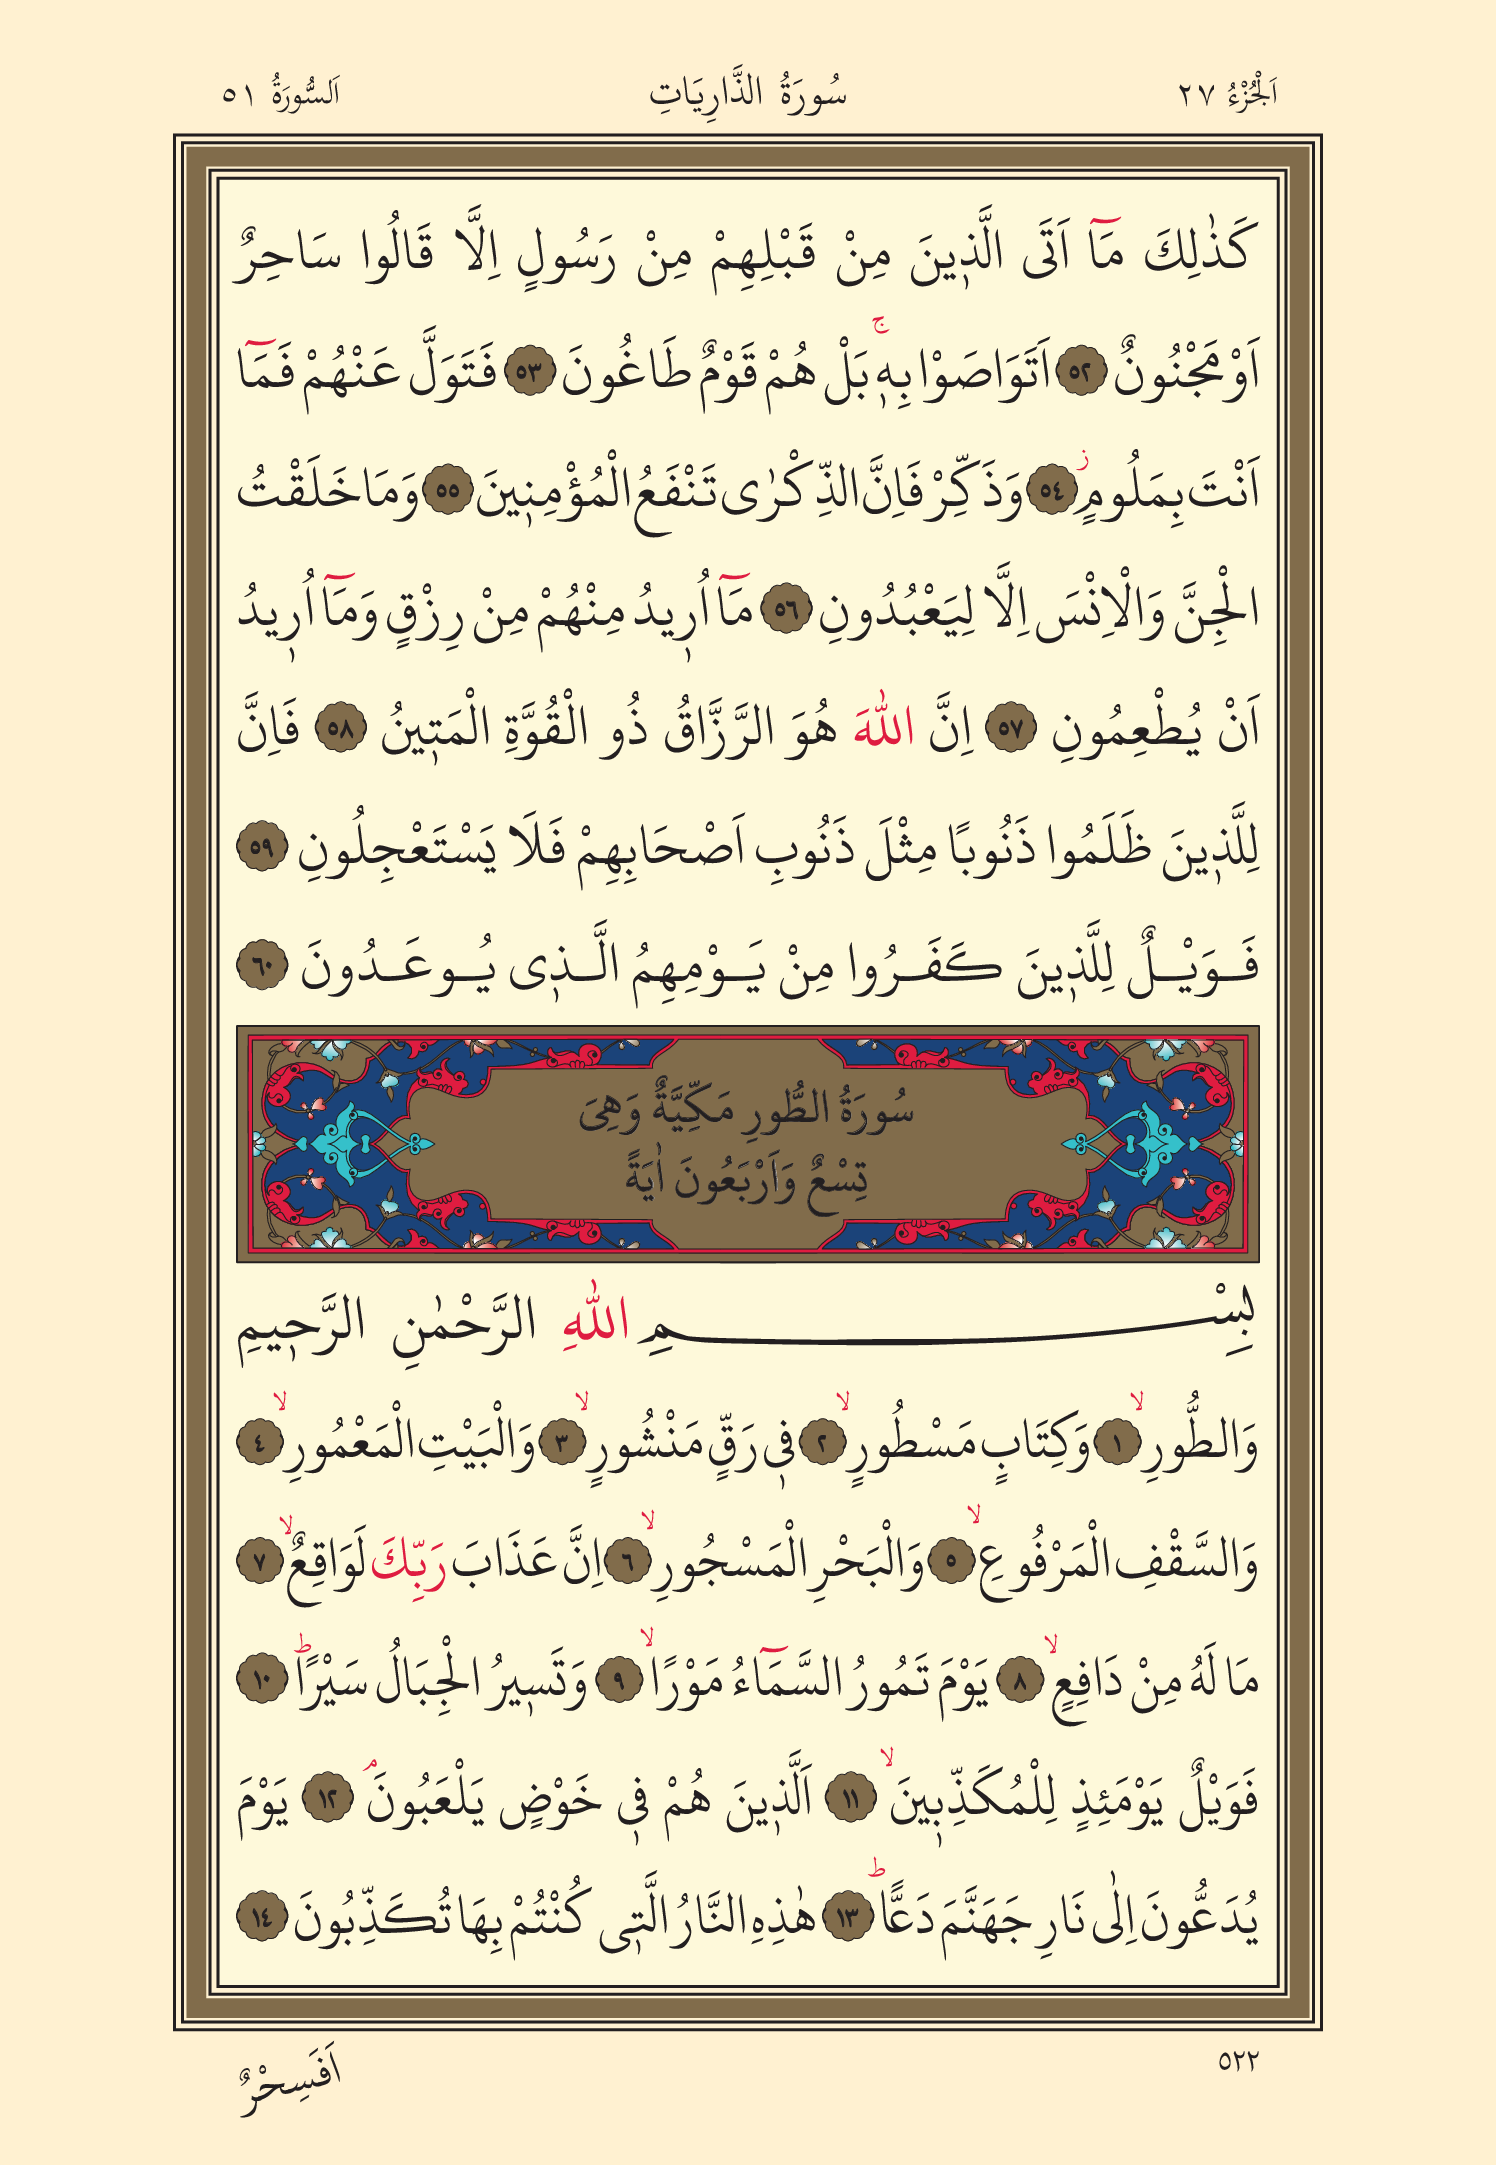 اَلْجُزْءُ ٢٧ سُورَةُ الذَّارِيَاتِ اَلسُّورَةُ ٥١
كَذٰلِكَ مَٓا اَتَى الَّذ۪ينَ مِنْ قَبْلِهِمْ مِنْ رَسُولٍ اِلَّا قَالُوا سَاحِرٌ
اَوْ مَجْنُونٌ ﴿٥٢﴾ اَتَوَاصَوْا بِه۪ۚ بَلْ هُمْ قَوْمٌ طَاغُونَ ﴿٥٣﴾ فَتَوَلَّ عَنْهُمْ فَمَٓا
اَنْتَ بِمَلُومٍۘ ﴿٥٤﴾ وَذَكِّرْ فَاِنَّ الذِّكْرٰى تَنْفَعُ الْمُؤْمِن۪ينَ ﴿٥٥﴾ وَمَا خَلَقْتُ
الْجِنَّ وَالْاِنْسَ اِلَّا لِيَعْبُدُونِ ﴿٥٦﴾ مَٓا اُر۪يدُ مِنْهُمْ مِنْ رِزْقٍ وَمَٓا اُر۪يدُ
اَنْ يُطْعِمُونِ ﴿٥٧﴾ اِنَّ اللّٰهَ هُوَ الرَّزَّاقُ ذُو الْقُوَّةِ الْمَت۪ينُ ﴿٥٨﴾ فَاِنَّ
لِلَّذ۪ينَ ظَلَمُوا ذَنُوبًا مِثْلَ ذَنُوبِ اَصْحَابِهِمْ فَلَا يَسْتَعْجِلُونِ ﴿٥٩﴾
فَوَيْلٌ لِلَّذ۪ينَ كَفَرُوا مِنْ يَوْمِهِمُ الَّذ۪ى يُوعَدُونَ ﴿٦٠﴾
سُورَةُ الطُّورِ مَكِّيَّةٌ وَهِىَ
تِسْعٌ وَاَرْبَعُونَ اٰيَةً
بِسْمِ اللّٰهِ الرَّحْمٰنِ الرَّح۪يمِ
وَالطُّورِۙ ﴿١﴾ وَكِتَابٍ مَسْطُورٍۙ ﴿٢﴾ ف۪ى رَقٍّ مَنْشُورٍۙ ﴿٣﴾ وَالْبَيْتِ الْمَعْمُورِۙ ﴿٤﴾
وَالسَّقْفِ الْمَرْفُوعِۙ ﴿٥﴾ وَالْبَحْرِ الْمَسْجُورِۙ ﴿٦﴾ اِنَّ عَذَابَ رَبِّكَ لَوَاقِعٌۙ ﴿٧﴾
مَا لَهُ مِنْ دَافِعٍۙ ﴿٨﴾ يَوْمَ تَمُورُ السَّمَٓاءُ مَوْرًاۙ ﴿٩﴾ وَتَس۪يرُ الْجِبَالُ سَيْرًاۜ ﴿١٠﴾
فَوَيْلٌ يَوْمَئِذٍ لِلْمُكَذِّب۪ينَۙ ﴿١١﴾ اَلَّذ۪ينَ هُمْ ف۪ى خَوْضٍ يَلْعَبُونَۢ ﴿١٢﴾ يَوْمَ
يُدَعُّونَ اِلٰى نَارِ جَهَنَّمَ دَعًّاۜ ﴿١٣﴾ هٰذِهِ النَّارُ الَّت۪ى كُنْتُمْ بِهَا تُكَذِّبُونَ ﴿١٤﴾
٥٢٢ اَفَسِحْرٌ